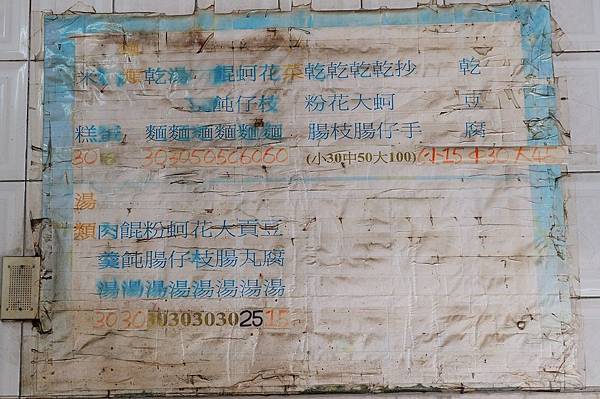 米糕 30
乾麵 30
湯麵 30
麵 50
餛飩麵 50
蚵仔麵 60
花枝麵 60
菜
乾粉腸
乾花枝
乾大腸
乾蚵仔
抄手
(小30中50大100)
乾豆腐
小15中30大45
湯類
肉羹湯 30
餛飩湯 30
粉腸湯 30
蚵仔湯 30
花枝湯 30
大腸湯 30
貢丸湯 25
豆腐湯 15